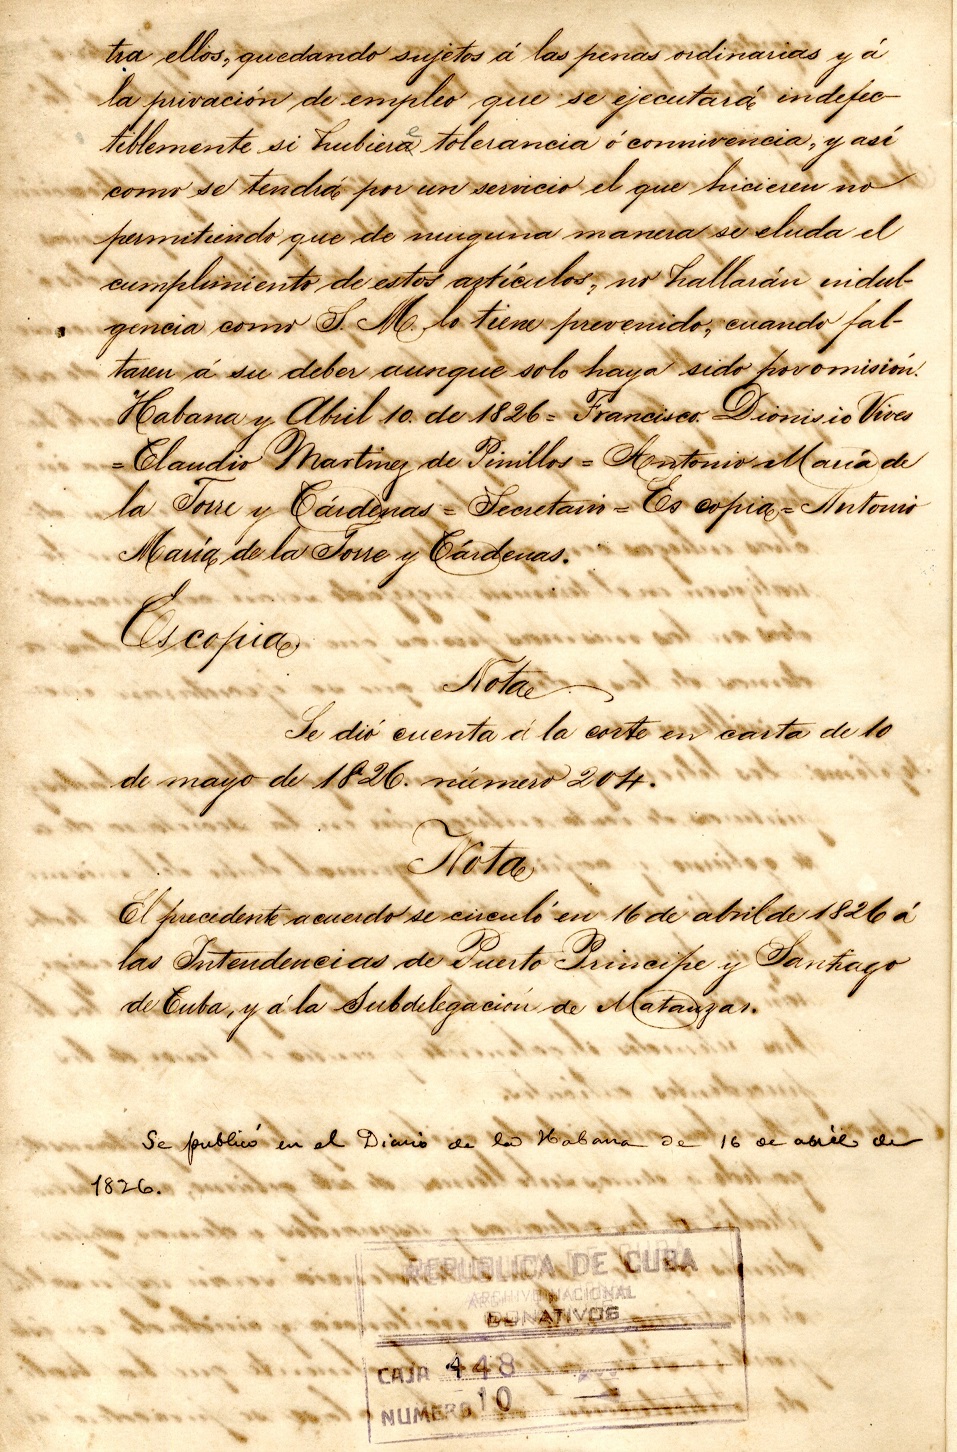 tra ellos, quedando sujetos á las penas ordinarias y á
la privación de empleo que se ejecutará indefec-
tiblemente si hubiera tolerancia ó connivencia, y así
como se tendrá por un servicio el que hicieren no
permitiendo que de ninguna manera se eluda el
cumplimiento de estos artículos, no hallarán indul-
gencia como S. M. lo tiene prevenido, cuando fal-
taren á su deber aunque solo haya sido por omisión.
Habana y Abril 10. de 1826 = Francisco Dionisio Vives
= Claudio Martinez de Pinillos = Antonio María de
la Torre y Cárdenas = Secretario = Es copia = Antonio
María de la Torre y Cárdenas.
Es copia
Nota
Se dió cuenta á la corte en carta de 10
de mayo de 1826. número 204.
Nota
El precedente acuerdo se circuló en 16 de abril de 1826 á
las Intendencias de Puerto Principe y Santiago
de Cuba, y á la Subdelegación de Matanzas.
Se publicó en el Diario de la Habana de 16 de abril de
1826.
REPUBLICA DE CUBA
ARCHIVO NACIONAL
DONATIVOS
CAJA 448
NUMERO 10